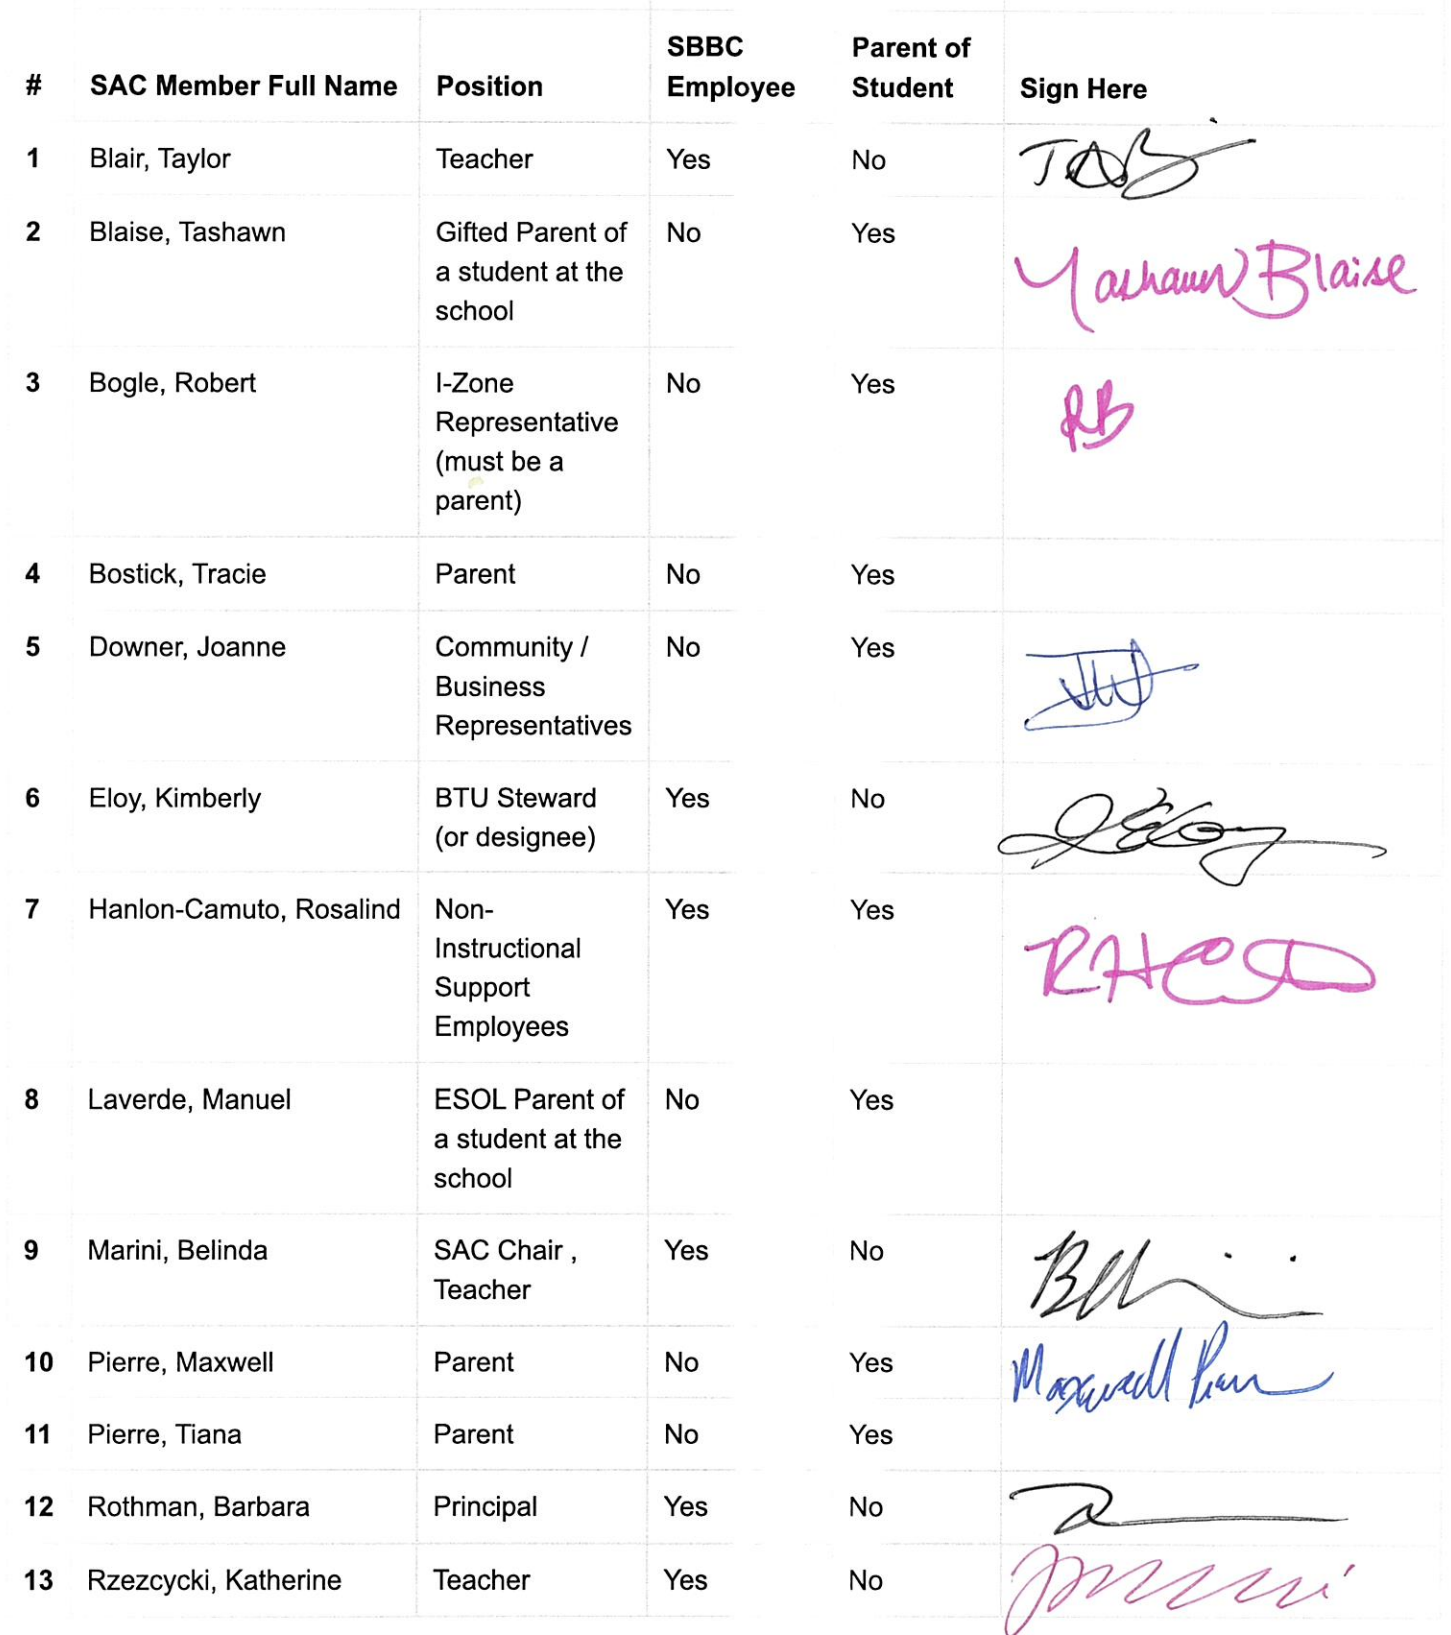 # SAC Member Full Name Position SBBC Employee Parent of Student Sign Here
1 Blair, Taylor Teacher Yes No TAB
2 Blaise, Tashawn Gifted Parent of No Yes Tashawn Blaise
a student at the
school
3 Bogle, Robert I-Zone No Yes RB
Representative
(must be a
parent)
4 Bostick, Tracie Parent No Yes
5 Downer, Joanne Community / No Yes
Business
Representatives
6 Eloy, Kimberly BTU Steward Yes No
(or designee)
7 Hanlon-Camuto, Rosalind Non- Yes Yes
Instructional
Support
Employees
8 Laverde, Manuel ESOL Parent of No Yes
a student at the
school
9 Marini, Belinda SAC Chair , Yes No
Teacher
10 Pierre, Maxwell Parent No Yes Maxwell
11 Pierre, Tiana Parent No Yes
12 Rothman, Barbara Principal Yes No
13 Rzezcycki, Katherine Teacher Yes No